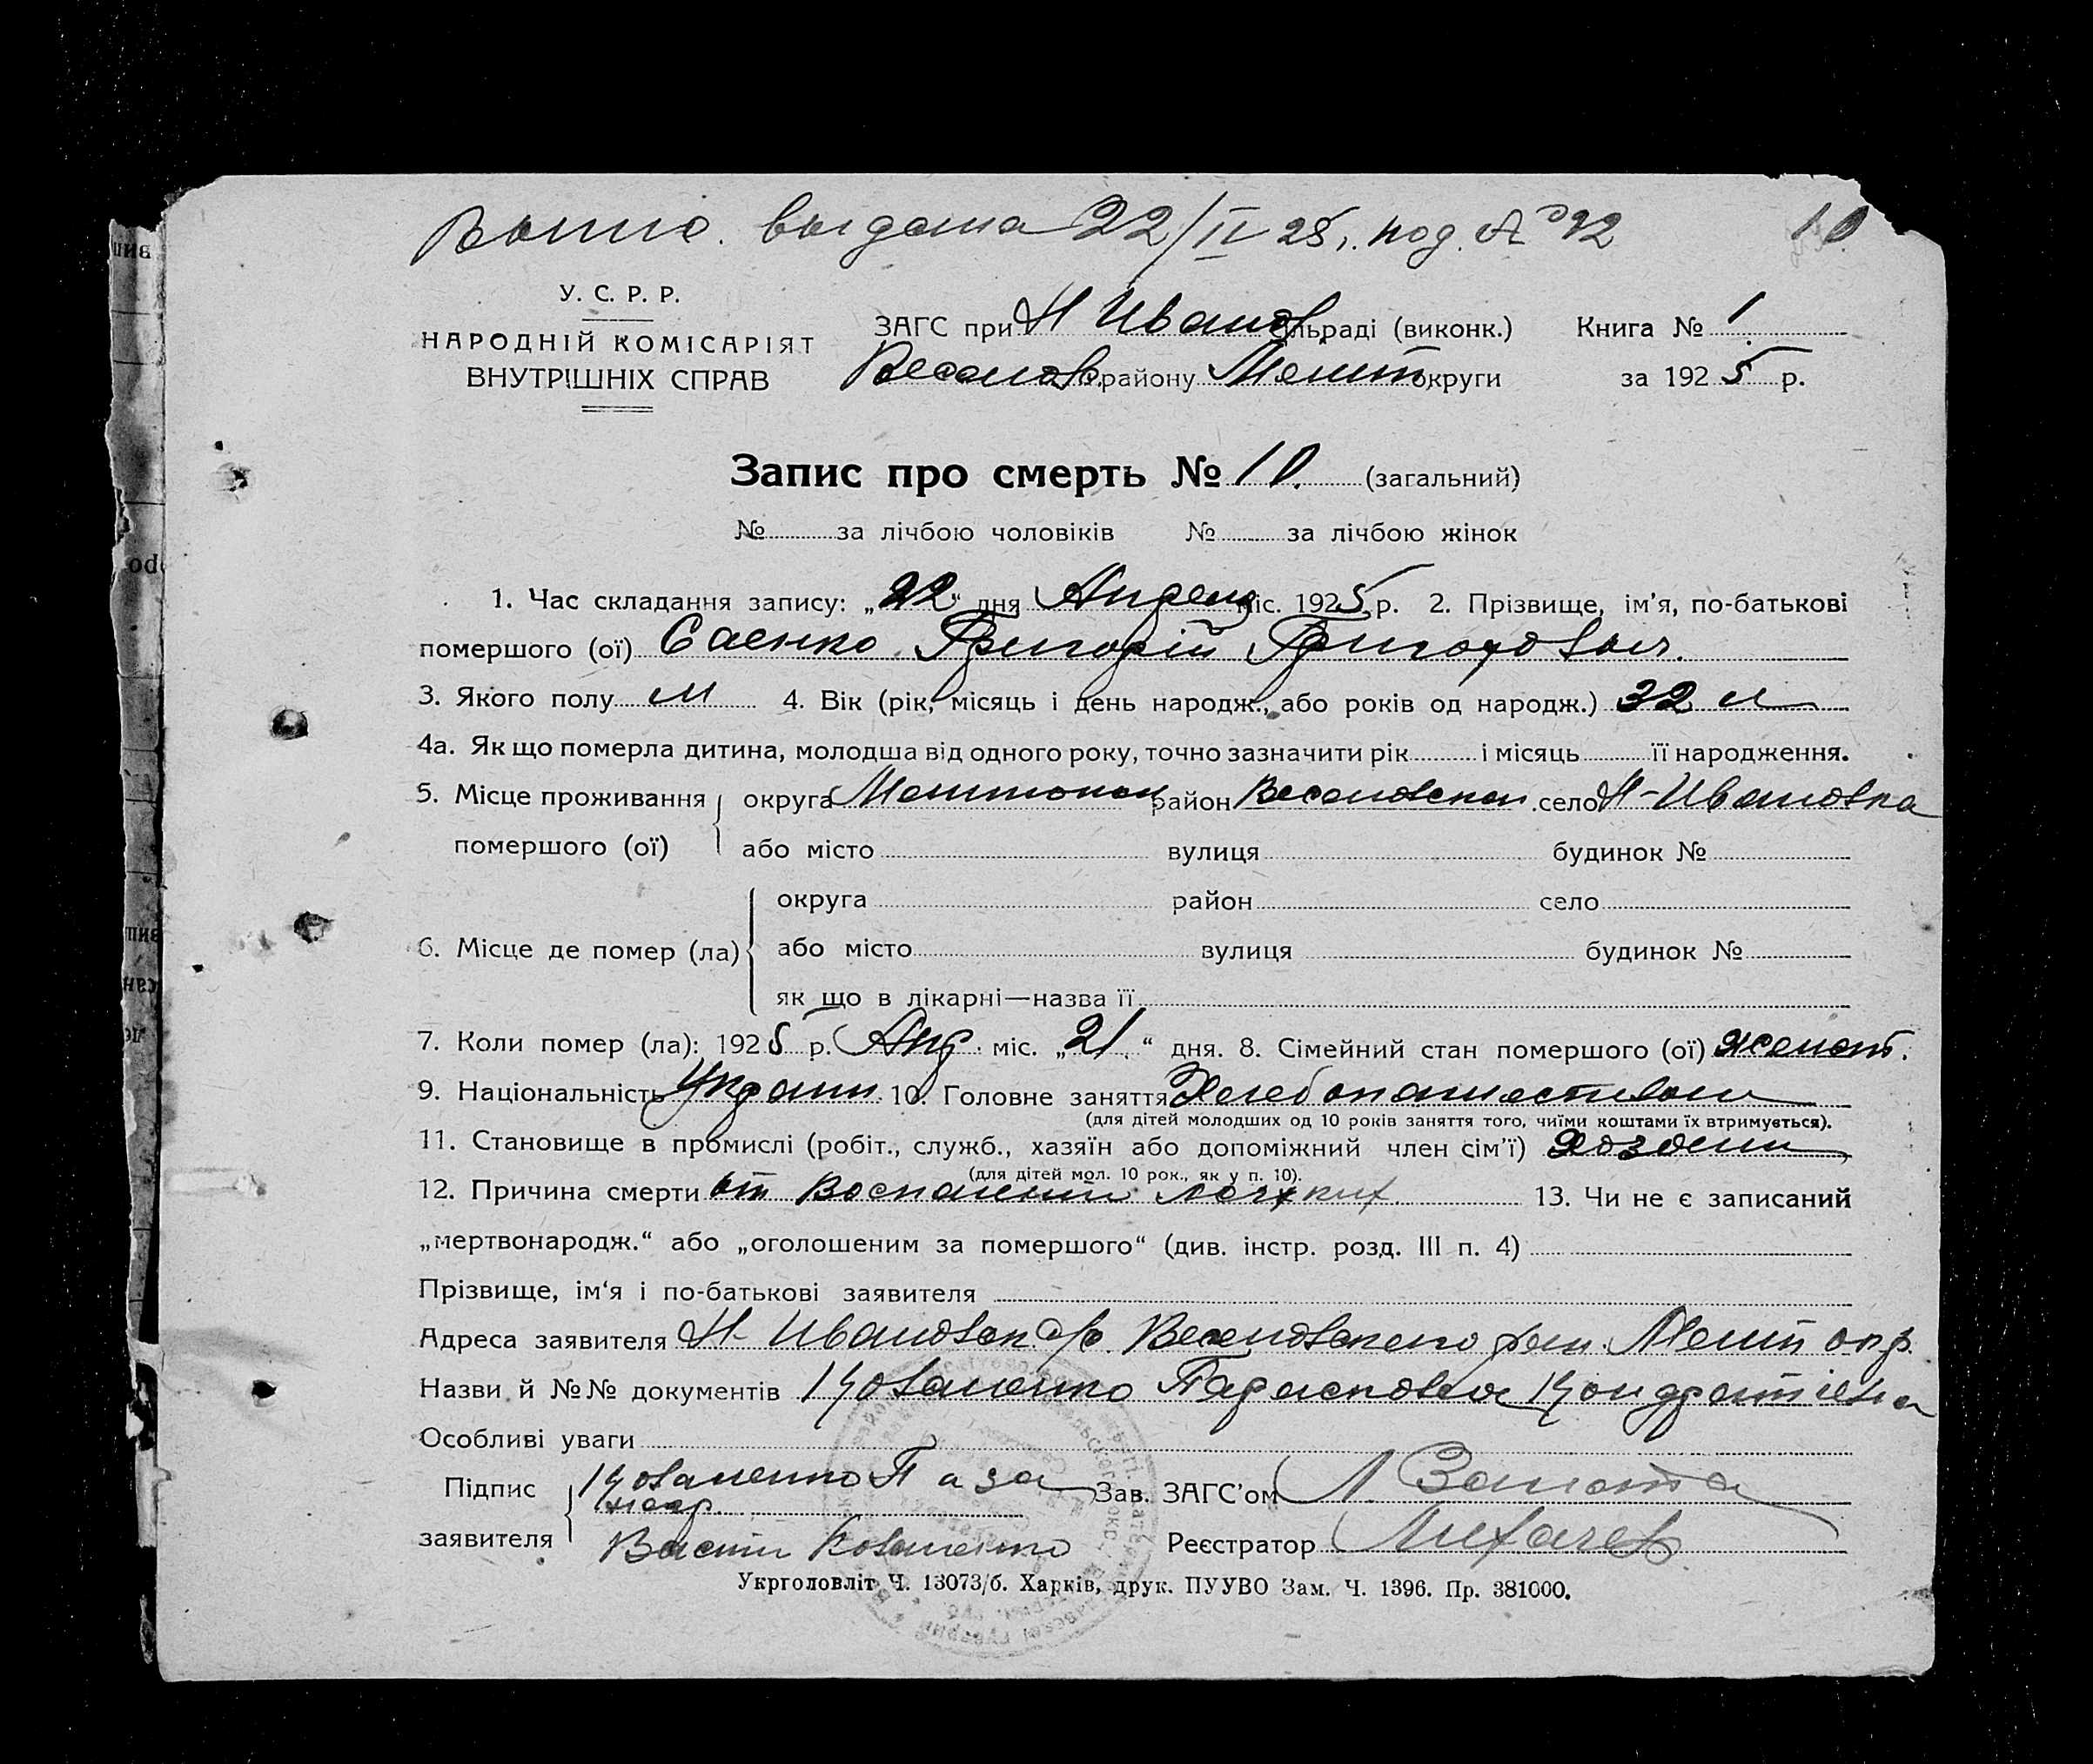 Выпис. выдана 22/IV 25 г. под № 92 10
У. С. Р. Р.
НАРОДНІЙ КОМІСАРІЯТ
ВНУТРІШНІХ СПРАВ
ЗАГС при Н Иванов сільраді (виконк.) Книга № 1
Веселов. району Мелит округи за 1925 р.
Запис про смерть № 10. (загальний)
№ за лічбою чоловіків № за лічбою жінок
1. Час складання запису: „22“ дня Апреля міс. 1925 р. 2. Прізвище, ім’я, по-батькові
помершого (ої) Саенко Григорій Григорович.
3. Якого полу м 4. Вік (рік, місяць і день народж., або років од народж.) 32 л
4а. Як що померла дитина, молодша від одного року, точно зазначити рік і місяць її народження.
5. Місце проживання округа район Веселовский село Н-Ивановка
помершого (ої) або місто вулиця будинок №
округа район село
6. Місце де помер (ла) або місто вулиця будинок №
як що в лікарні—назва її
7. Коли помер (ла): 1925 р. Апр. міс. „21“ дня. 8. Сімейний стан помершого (ої) женат.
9. Національність Украин. 10. Головне заняття Хлебопашеством
(для дітей молодших од 10 років заняття того, чиїми коштами їх втримується).
11. Становище в промислі (робіт., служб., хазяїн або допоміжний член сім’ї) Хозяин
(для дітей мол. 10 рок., як у п. 10).
12. Причина смерти от Воспаления легких 13. Чи не є записаний
„мертвонародж.“ або „оголошеним за помершого“ (див. інстр. розд. III п. 4)
Прізвище, ім‘я і по-батькові заявителя
Адреса заявителя Н-Ивановск с/с. Веселовского рай. Мелит окр.
Назви й №№ документів Коваленко Парасковья Кондратіевна
Особливі уваги
Підпис Коваленко П а за Зав. ЗАГС’ом Л. Золота
негр.
заявителя Васит Коваленко Реєстратор Лихачев
Укрголовліт Ч. 13073/б. Харків, друк. ПУУВО Зам. Ч. 1396. Пр. 381000.